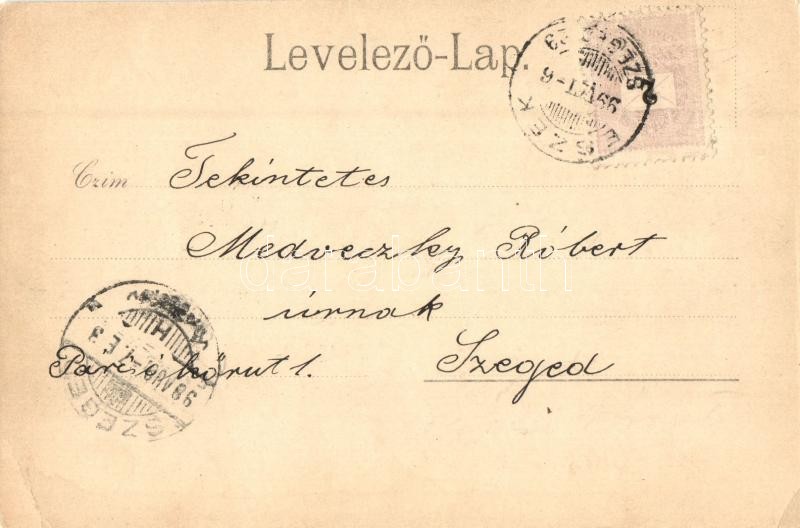 Levelező-Lap.
Czim
Tekintetes
Medveczky Róbert
úrnak
Szeged
Párisi körut 1.
darabanth